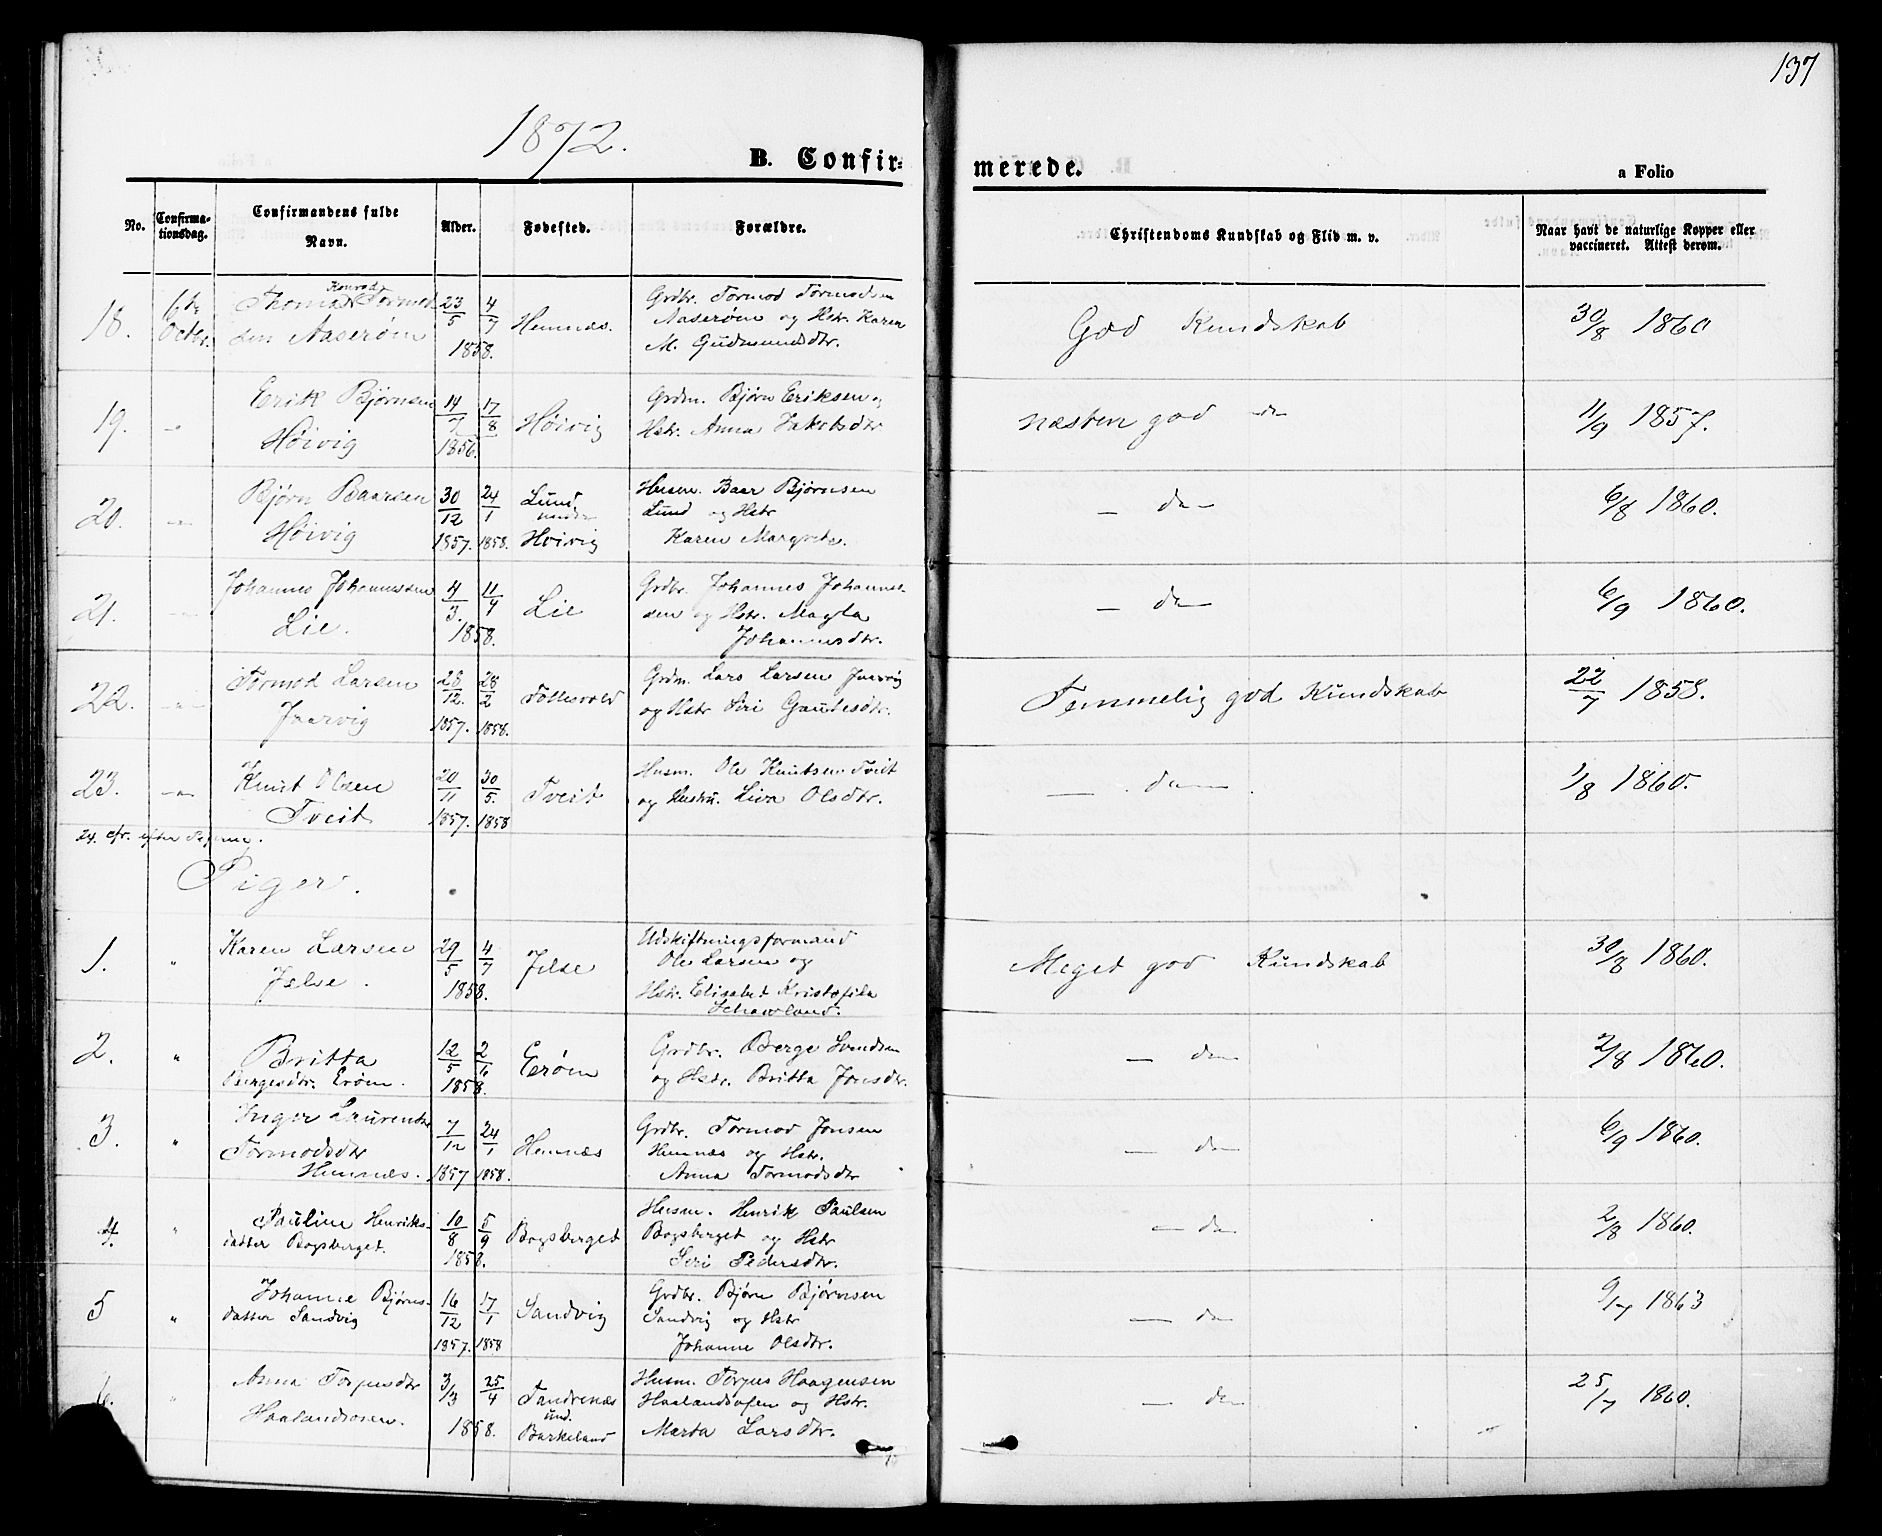 137
1872.
B. Confir-
merede.
a Folio
No.
Confirma-
tionsdag.
Confirmandens fulde
Navn.
Alder.
Fødested.
Forældre.
Christendoms Kundskab og Flid m. v.
Naar havt de naturlige Kopper eller
vaccineret. Attest derom.
18. 6te Octbr. Thomas Konrad Tormod-
sen Aaserøm
23/5 4/7 1858. Hemnæs.
Grdbr. Tormod Tormodsen
Aaserøm og Hstr. Karen
M. Gudmundsdtr.
God Kundskab
30/8 1860
19. Erik Bjørnsen
Høivig
14/7 17/8 1856. Høivig
Grdm. Bjørn Eriksen og
Hstr. Anna Jakobsdtr
næsten god do
11/9 1857.
20. Bjørn Baarsen
Høivig
30/12 1857. 24/1 1858. Lund
under
Høivig
Husm. Baar Bjørnsen
Lund og Hstr
Karen Margrete.
— do —
6/8 1860.
21. Johannes Johannessen
Lie.
4/3. 11/4 1858. Lie
Grdbr. Johannes Johannes-
sen og Hstr. Magla
Johannesdtr.
— do —
6/9 1860.
22. Tormod Larsen
Jaarvig
28/12. 1857. 28/2 1858.
Grdm. Lars Larsen Jaarvig
og Hstr Siri Gautesdtr.
Temmelig god Kundskab
22/7 1858.
23. Knut Olsen
Tveit
20/11 1857. 30/5. 1858 Tveit
Husm. Ole Knutsen Tveit
og Hustru. Liva Olsdtr.
— do —
1/8 1860.
24. cfr. efter Pigerne.
Piger.
1. " Karen Larsen
Jelse.
29/5 4/7 1858. Jelse
Udskiftningsformand
Ole Larsen og
Hstr. Elisabet Kristofila
Meget god Kundskab
30/8 1860.
2. " Britta
Bergesdtr. Erøm.
12/5 2/6 1858. Erøm
Grdbr. Berge Svendsen
og Hstr. Britta Jonsdtr.
— do —
2/8 1860.
3. " Inger Laurentse
Tormodsdtr
Hemnæs.
7/12 1857 24/1 1858. Hemnæs
Grdbr. Tormod Jonsen
Hemnæs og Hstr.
Anna Tormodsdtr
— do —
6/9 1860.
4. " Pauline Henriks-
datter Bogsberget.
10/8 5/9 1858. Bogsberget
Husm. Henrik Paulsen
Bogsberget og Hstr
Siri Pedersdtr.
— do —
2/8 1860.
5 " Johanne Bjørns-
datter Sandvig
16/12 1857. 17/1 1858 Sandvig
Grdbr. Bjørn Bjørnsen
Sandvig og Hstr
Johanne Olsdtr.
— do —
9/7 1863
6. " Anna Torjusdtr
Haalandsosen.
3/3 25/4 1858. Tandrenæs
und.
Barkeland
Husm. Torjus Haagensen
Haalandsosen og Hstr.
Marta Larsdtr.
— do —
25/7 1860.